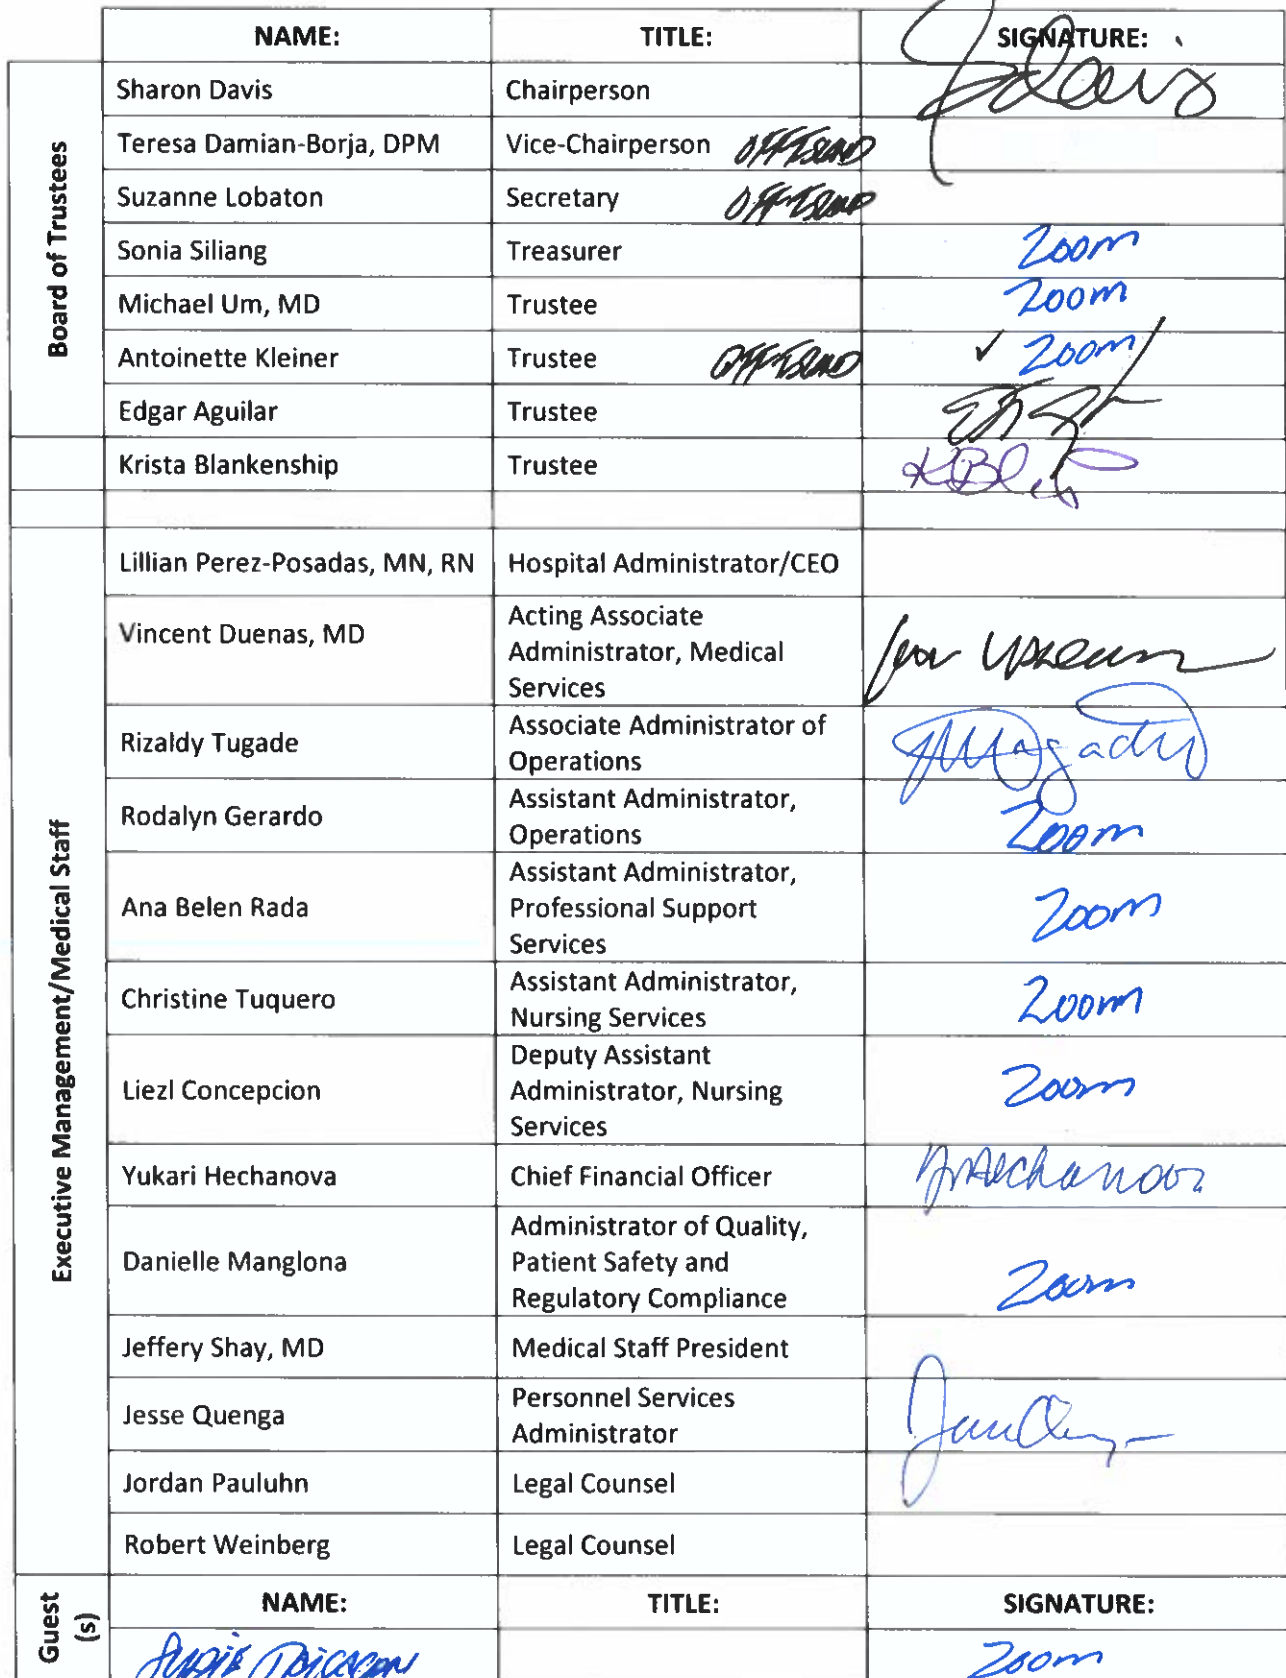 NAME: TITLE: SIGNATURE:
Board of Trustees
Sharon Davis Chairperson SDavis
Teresa Damian-Borja, DPM Vice-Chairperson OFF ISLAND
Suzanne Lobaton Secretary OFF-ISLAND
Sonia Siliang Treasurer Zoom
Michael Um, MD Trustee Zoom
Antoinette Kleiner Trustee OFF-ISLAND ✓ Zoom
Edgar Aguilar Trustee
Krista Blankenship Trustee
Executive Management/Medical Staff
Lillian Perez-Posadas, MN, RN Hospital Administrator/CEO
Vincent Duenas, MD Acting Associate
Administrator, Medical
Services
Rizaldy Tugade Associate Administrator of
Operations
Rodalyn Gerardo Assistant Administrator,
Operations Zoom
Ana Belen Rada Assistant Administrator,
Professional Support
Services Zoom
Christine Tuquero Assistant Administrator,
Nursing Services Zoom
Liezl Concepcion Deputy Assistant
Administrator, Nursing
Services Zoom
Yukari Hechanova Chief Financial Officer
Danielle Manglona Administrator of Quality,
Patient Safety and
Regulatory Compliance Zoom
Jeffery Shay, MD Medical Staff President
Jesse Quenga Personnel Services
Administrator
Jordan Pauluhn Legal Counsel
Robert Weinberg Legal Counsel
Guest
(s)
NAME: TITLE: SIGNATURE:
Zoom